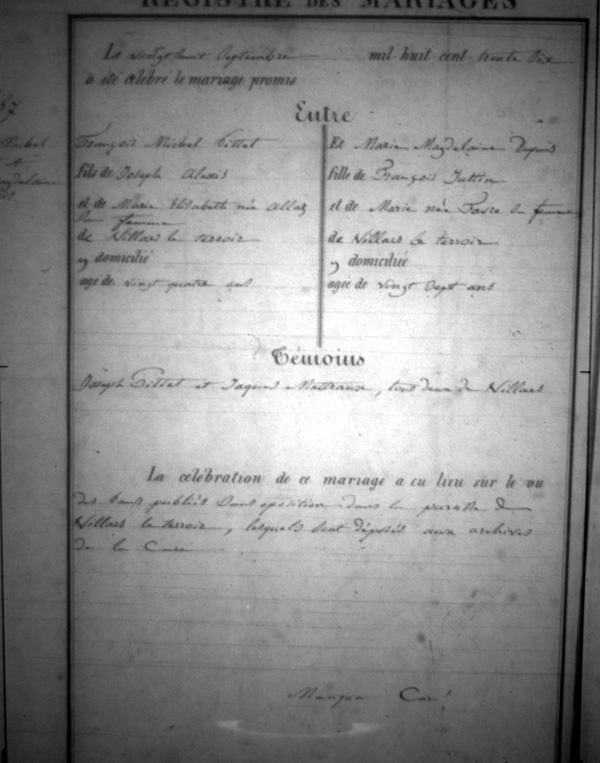 REGISTRE DES MARIAGES
Le vingt huit Septembre mil huit cent trente Six
à été célébré le mariage promis
67
Michel
Magdelaine
Entre
François Michel Pittet
fils de Joseph Alexis
et de Marie Elisabeth née Allaz
Sa femme
de Villars le terroir
y domicilié
agé de vingt quatre ans
Et Marie Magdelaine Dupuis
fille de François Justin
et de Marie née Favre Sa femme
de Villars le terroir
y domiciliée
agée de vingt Sept ans
Témoins
Joseph Pittet et Jaques Mettraux, tous deux de Villars
La célébration de ce mariage a eu lieu sur le vu
des bans publiés Sans oposition dans la paroisse de
Villars le terroir, lesquels sont déposés aux archives
de la Cure
Curé